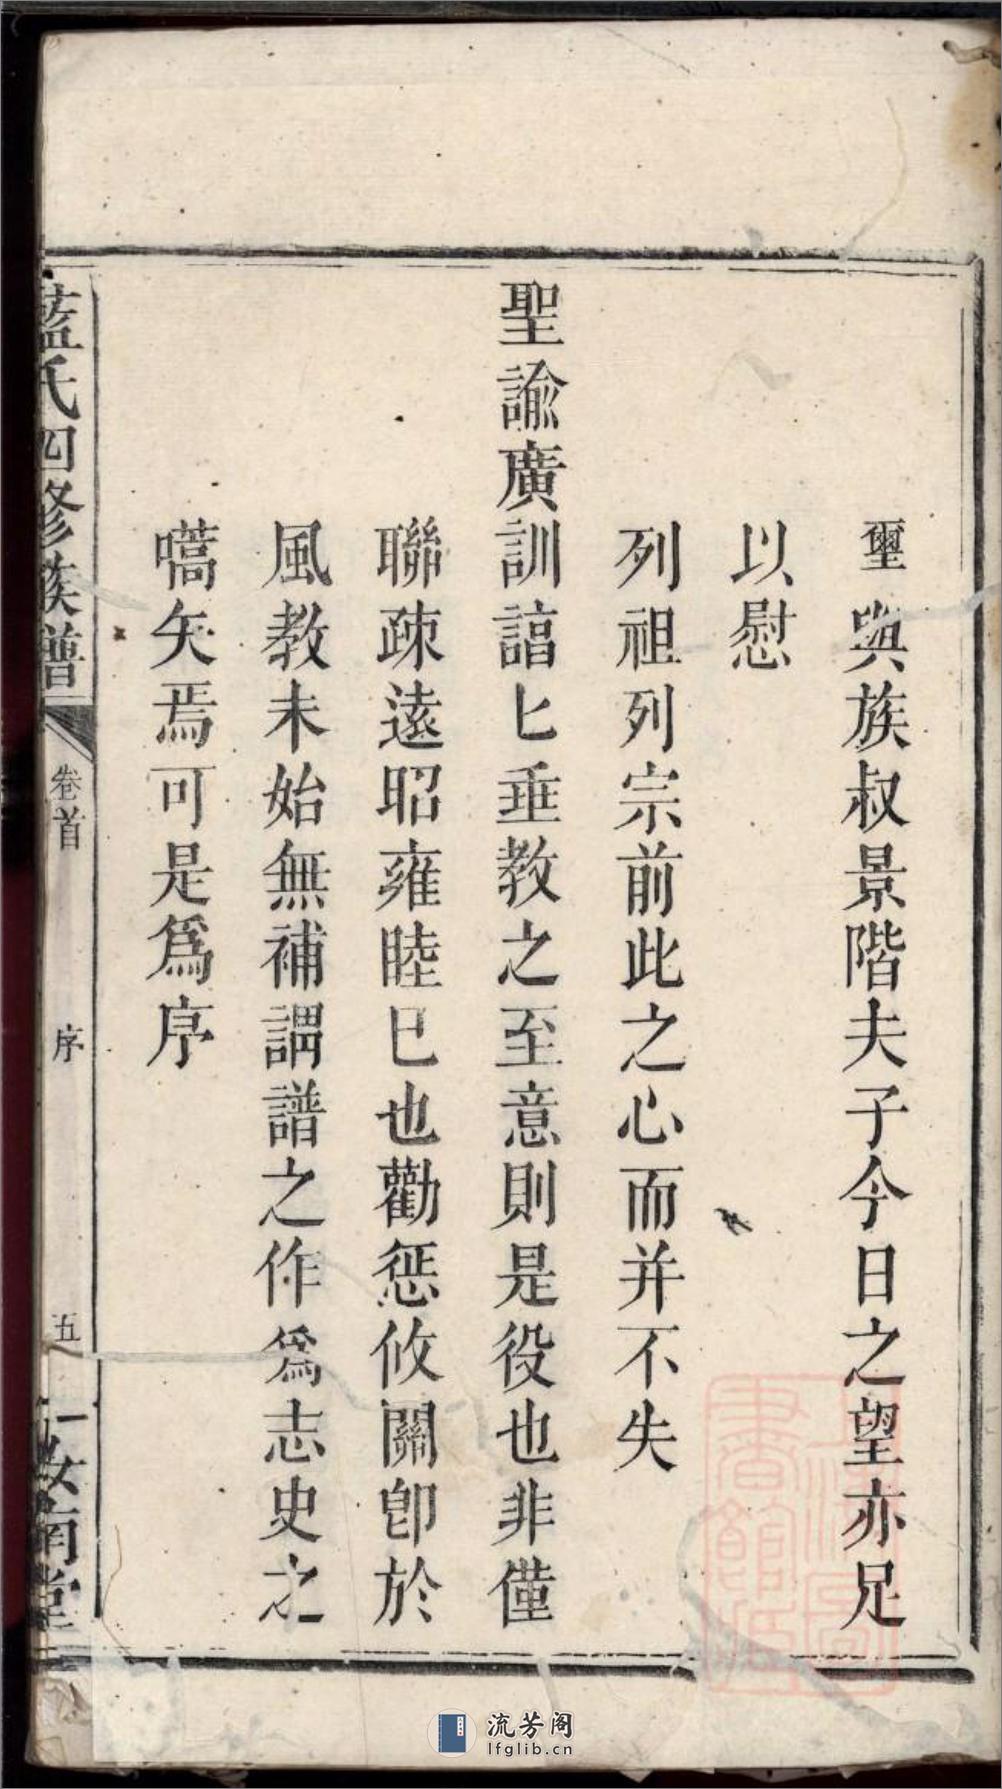 璽與族叔景階夫子今日之望亦足
以慰
列祖列宗前此之心而并不失
聖諭廣訓誥匕垂教之至意則是役也非僅
聯疎遠昭雍睦巳也勸惩攸關卽於
風教未始無補謂譜之作爲志史之
嚆矢焉可是爲序
藍氏四修族譜
卷首
序
五
汝南堂
流芳阁
lfglib.cn